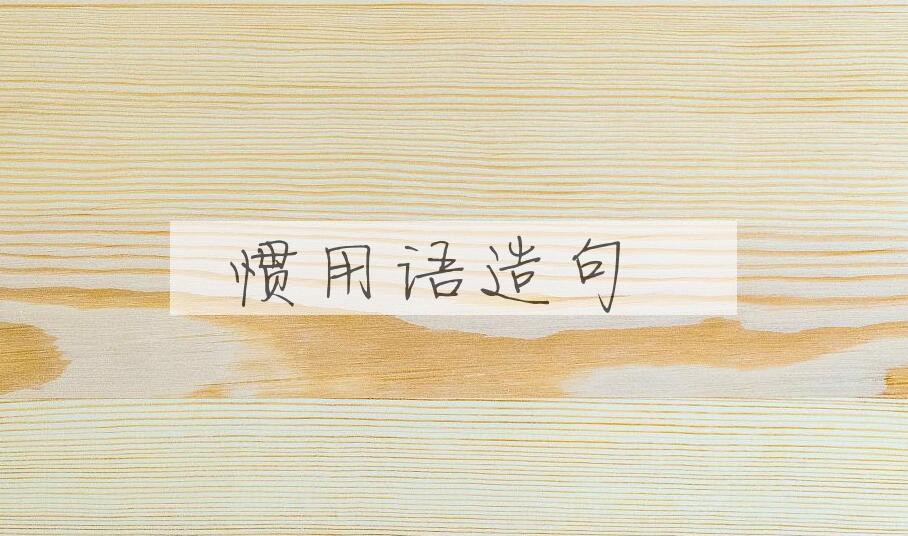 惯用语造句